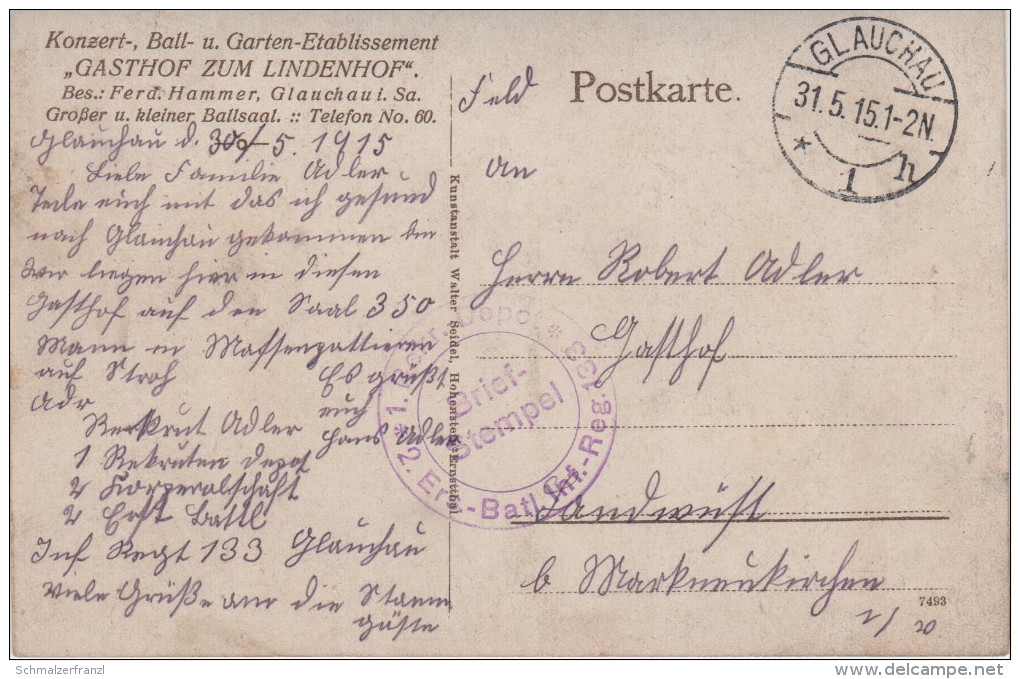 Konzert-, Ball- u. Garten-Etablissement
„GASTHOF ZUM LINDENHOF“.
Bes.: Ferd. Hammer, Glauchau i. Sa.
Großer u. kleiner Ballsaal. :: Telefon No. 60.
Glauchau d. 30/5. 1915
Liebe Familie Adler
Teile euch mit das ich gesund
nach Glauchau gekommen bin
Wir liegen hier in diesen
Gasthof auf den Saal 350
Mann in Massenquattieren
auf Stroh
Es grüßt
euch
Hans Adler
Adr
Rekrut Adler
1 Rekruten Depot
2 Korporalschaft
2 Ers. Battl
Inf Regt 133 Glauchau
Viele Grüße an die Stamm
gäste
Kunstanstalt Walter Seidel, Hohenstein-Ernstthal
Feld
Postkarte.
GLAUCHAU
31.5.15.1-2N.
* 1 h
An
Herrn Robert Adler
Gasthof
Landwüst
b Markneukirchen
*1. Rekr. Depot* 2. Ers.-Batl. Inf.-Reg. 133
Brief-
Stempel
7493
Schmalzerfranzl
delcampe.net